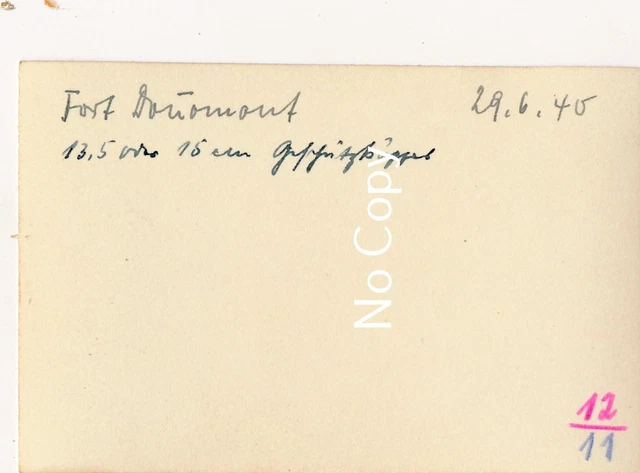 Fort Douomont 29.6.40
13,5 oder 15 cm Geschützkuppel
No Copy
12
11